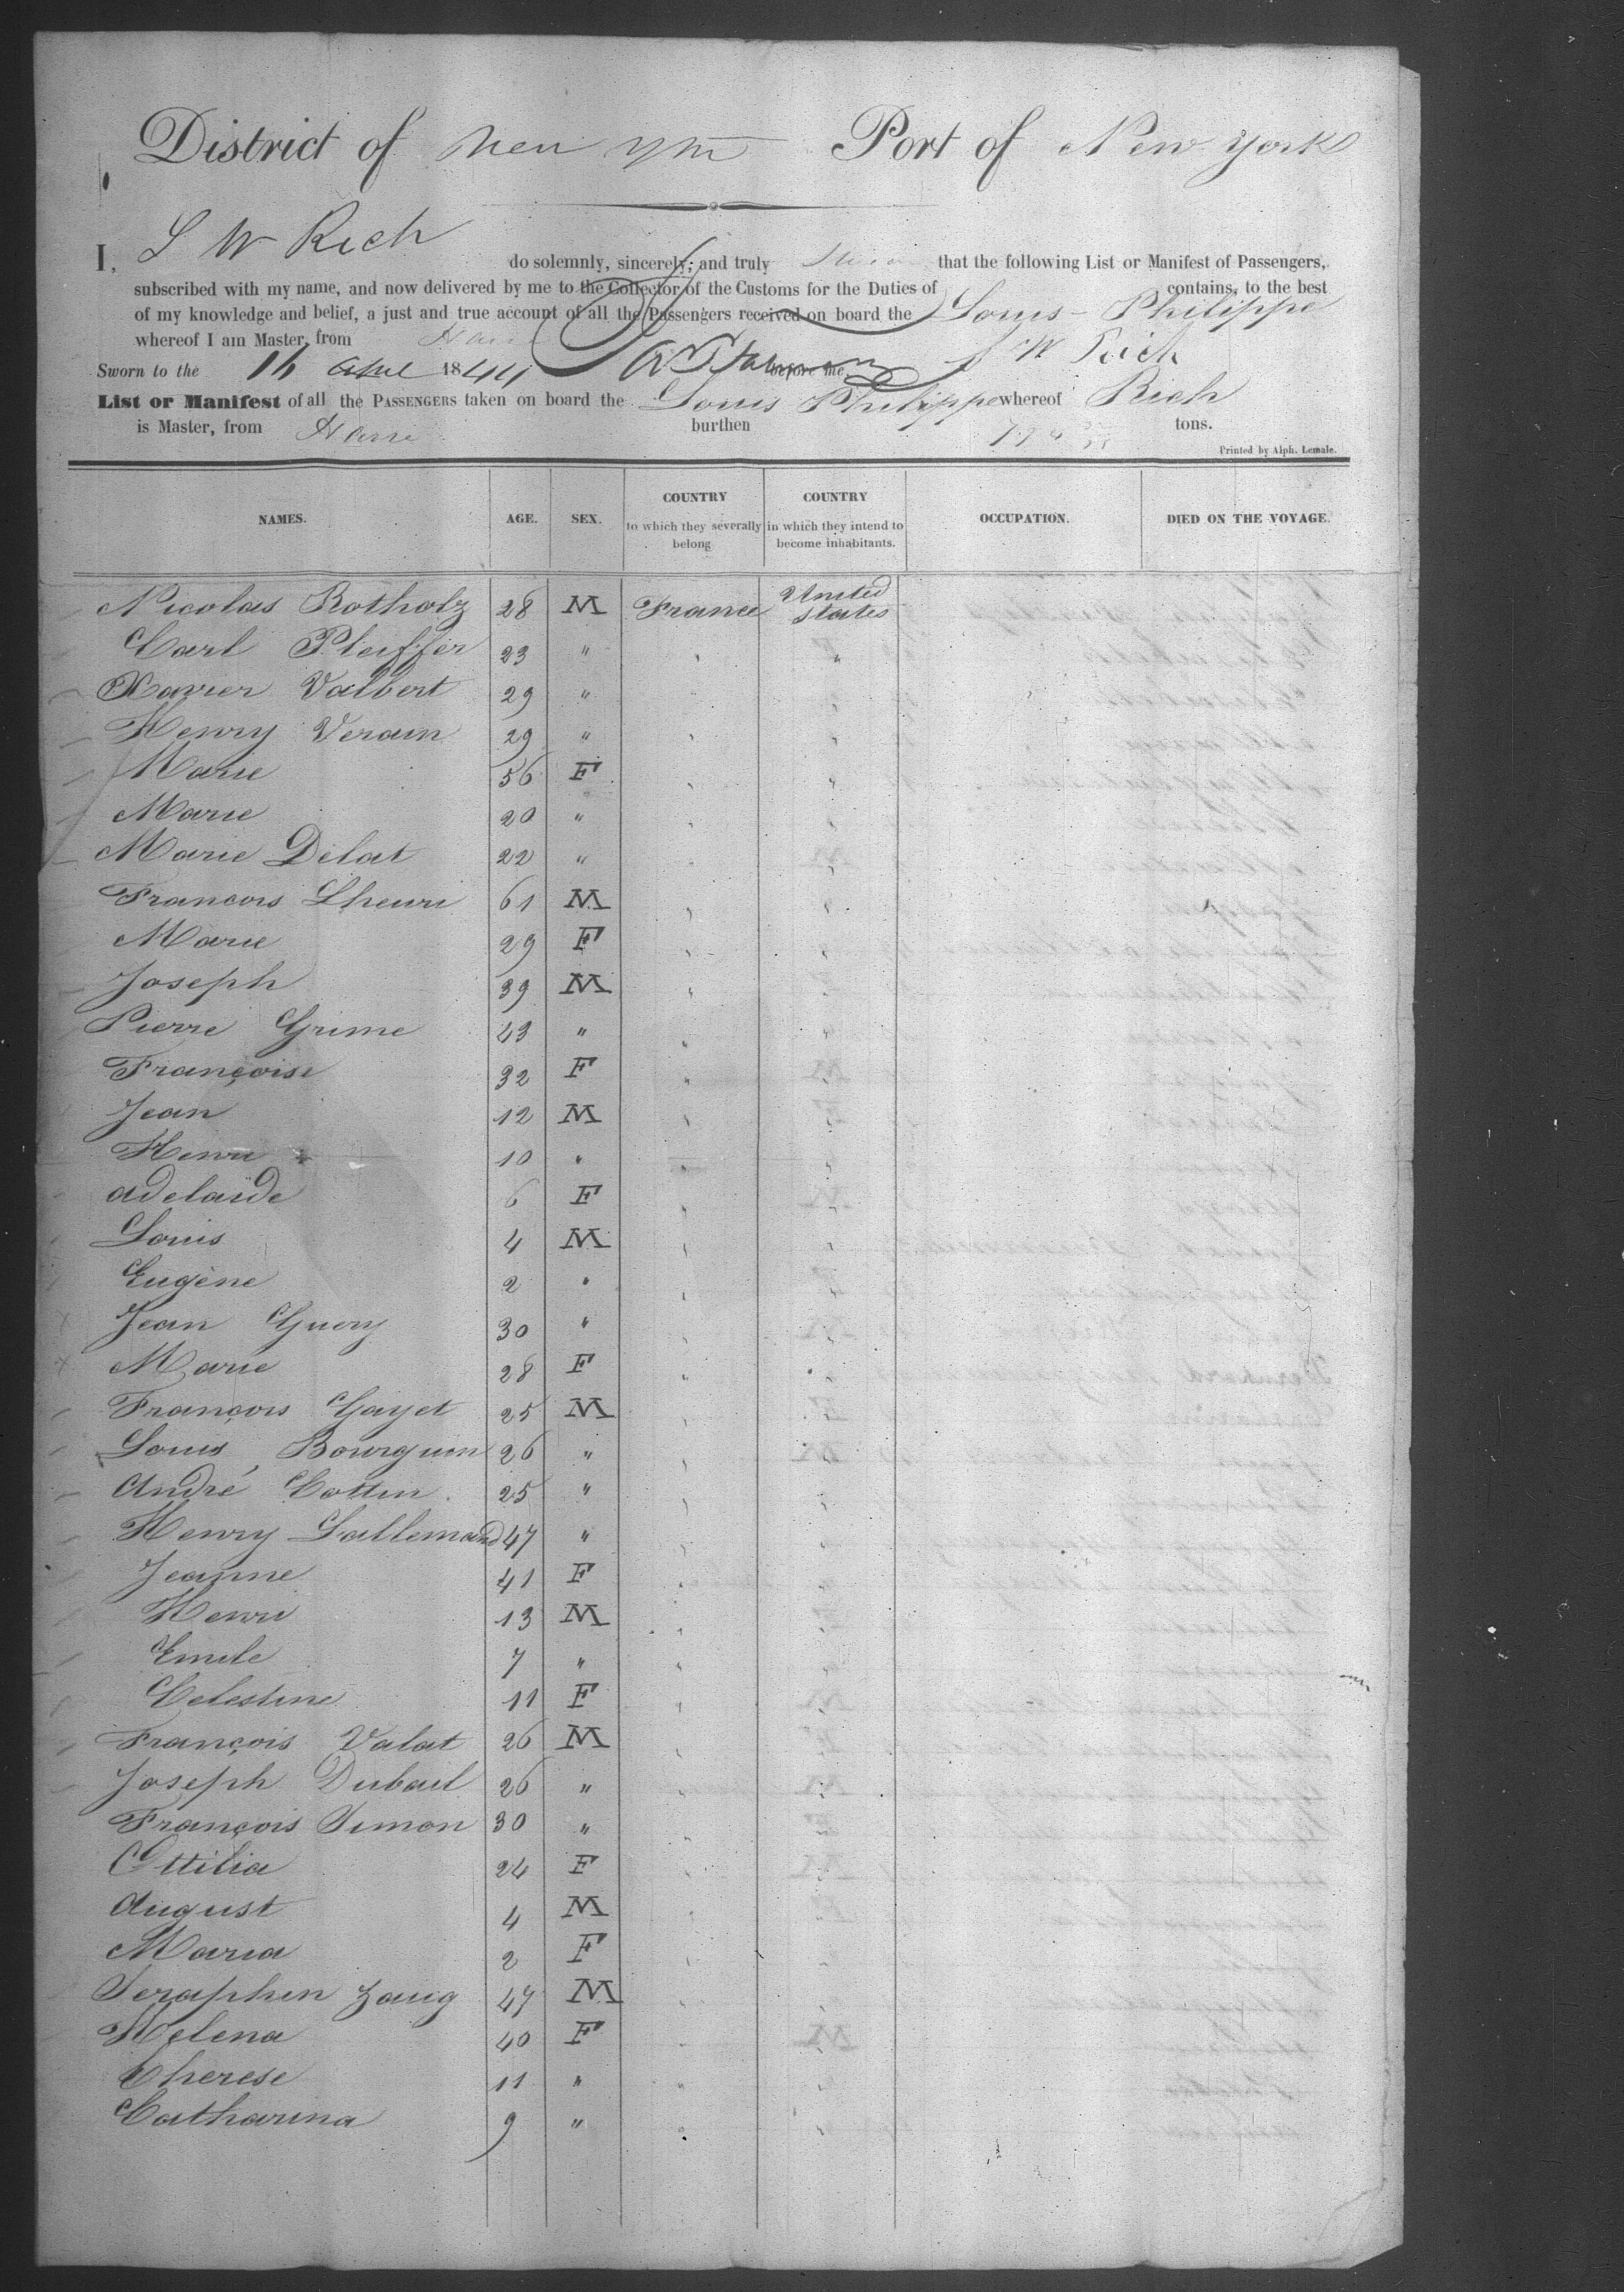 District of New York Port of New York
I, S W Rich do solemnly, sincerely, and truly swear that the following List or Manifest of Passengers,
subscribed with my name, and now delivered by me to the Collector of the Customs for the Duties of contains, to the best
of my knowledge and belief, a just and true account of all the Passengers received on board the Louis-Philippe
whereof I am Master, from Havre S W Rich
Sworn to the 16 April 1844 before me,
List or Manifest of all the PASSENGERS taken on board the Louis Philippe whereof Rich
is Master, from Havre burthen tons.
Printed by Alph. Lemale.
NAMES. AGE. SEX. COUNTRY to which they severally belong COUNTRY in which they intend to become inhabitants. OCCUPATION. DIED ON THE VOYAGE.
Nicolas Rotholz 28 M France United states
Carl Pleiffer 23 " " "
Xavier Valbert 29 " " "
Henry Verain 29 " " "
Marie 56 F " "
Marie 20 " " "
Marie Delat 22 " " "
Francois Lheuri 61 M " "
Marie 29 F " "
Joseph 39 M " "
Pierre Grime 43 " " "
Françoise 32 F " "
Jean 12 M " "
Henri 10 " " "
Adelaïde 6 F " "
Louis 4 M " "
Eugène 2 " " "
Jean Guery 30 " " "
Marie 28 F " "
François Gayet 25 M " "
Louis Bourguin 26 " " "
André Cottin 25 " " "
Henry Lallemand 47 " " "
Jeanne 41 F " "
Henri 13 M " "
Emile 7 " " "
Celestine 11 F " "
François Valat 26 M " "
Joseph Dubail 26 " " "
François Simon 30 " " "
Ottilia 24 F " "
August 4 M " "
Maria 2 F " "
Seraphin Zaug 47 M " "
Helena 40 F " "
Therese 11 " " "
Catharina 9 " " "